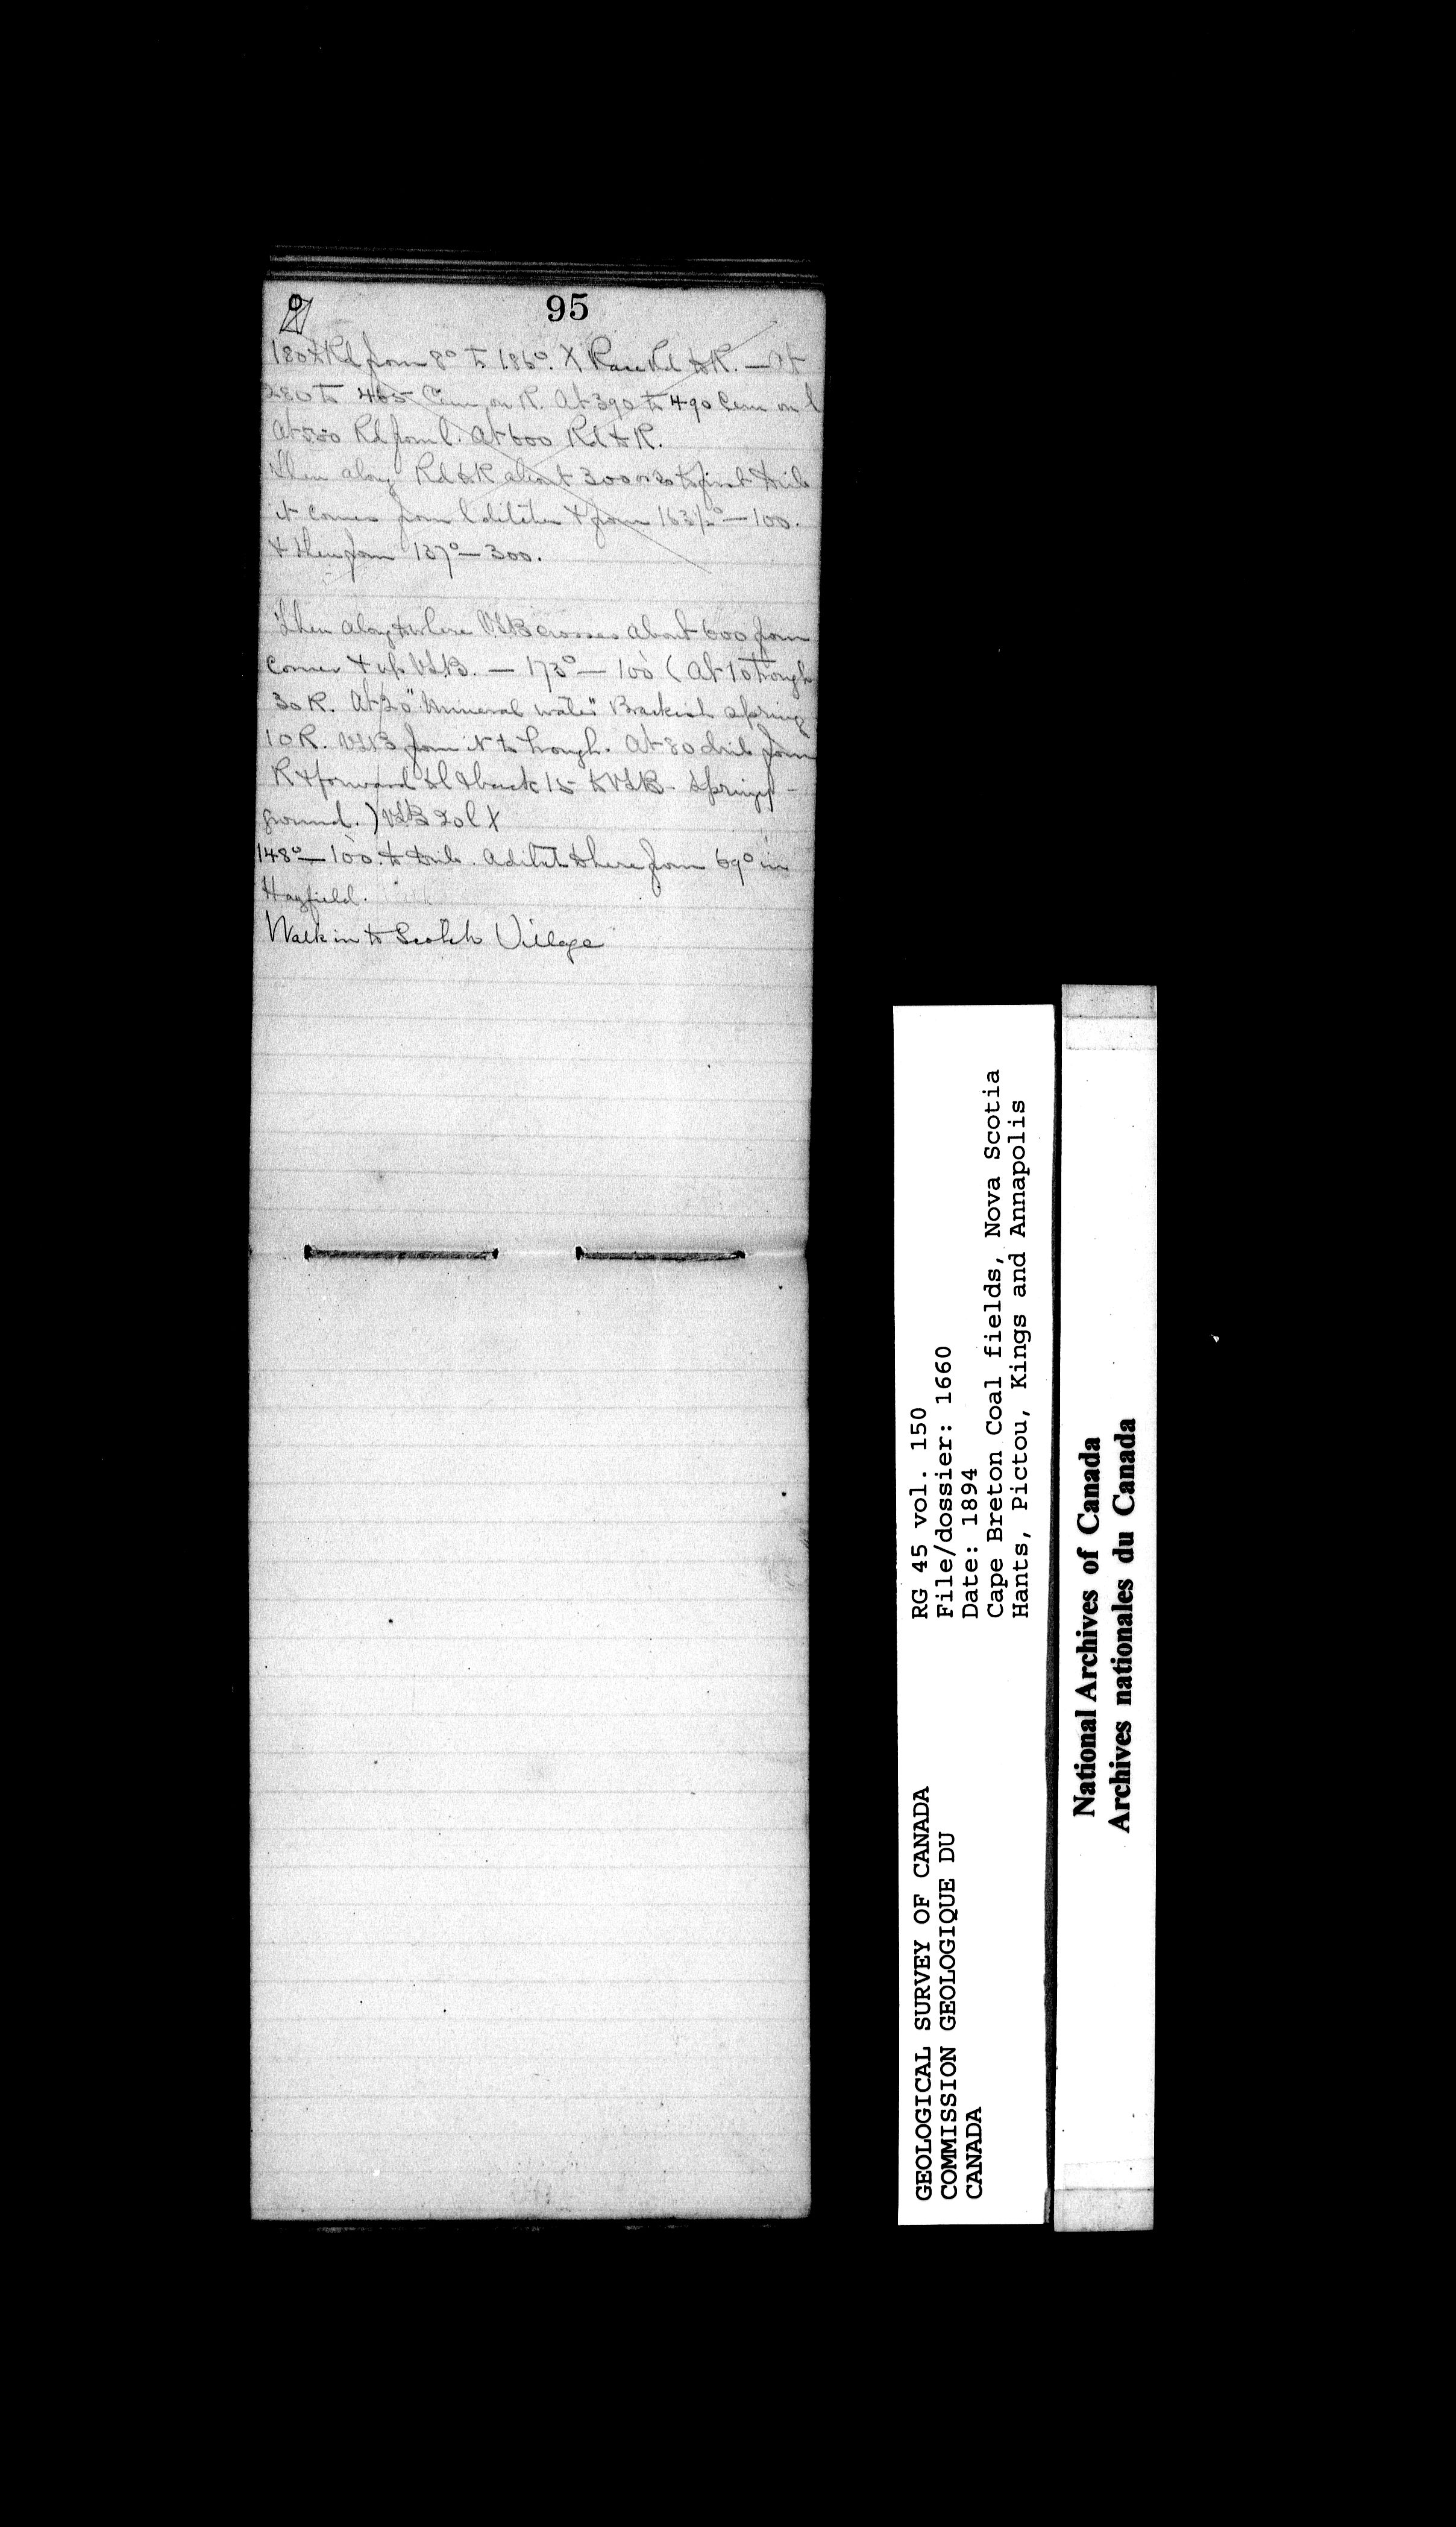 95
180 X Rd from 8° to 186°. X Race Rd to R. — At
280 to 465 Cem on R. At 390 to 490 Cem on l
At 500 Rd from l. At 600 Rd to R.
Then along Rd to R about 300 to first
it comes from l & from 163½° — 100.
& then from 137° — 300.
Then along to where VSB crosses about 600 from
corner & up VSB. — 173° — 100 (At 10 trough
30 R. At 20 "Mineral water" Brackish spring
10 R. VSB from N to trough. At 80 from
R & forward to l & back 15 to VSB - springy -
ground.) VSB 20 l X
148° — 100. to . A ditch to here from 69° in
Hayfield.
Walk in to Scotch Village
RG 45 vol. 150
File/dossier: 1660
Date: 1894
Cape Breton Coal fields, Nova Scotia
Hants, Pictou, Kings and Annapolis
GEOLOGICAL SURVEY OF CANADA
COMMISSION GEOLOGIQUE DU
CANADA
National Archives of Canada
Archives nationales du Canada